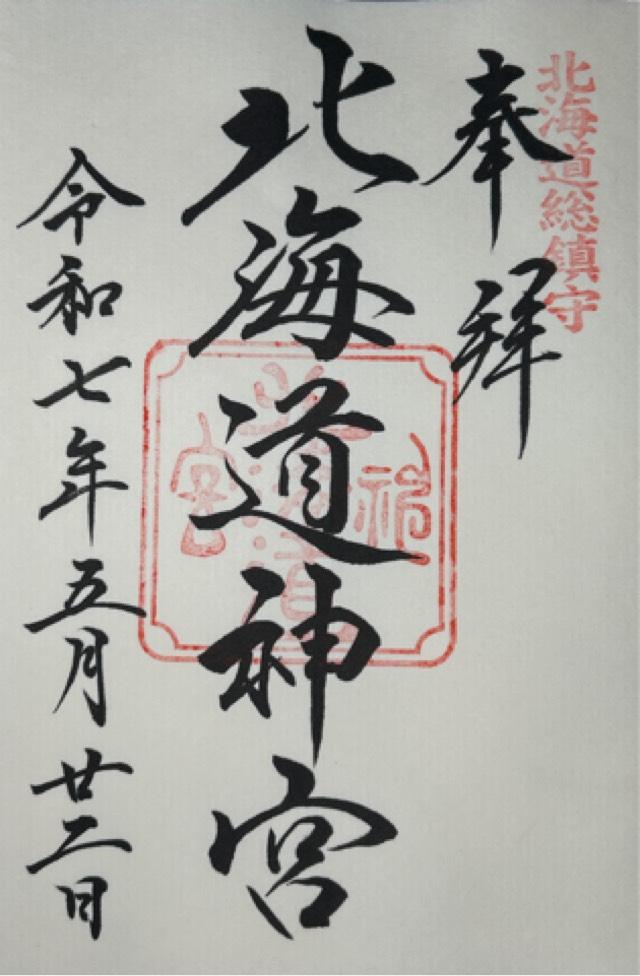 北海道総鎮守
奉拝
北海道神宮
令和七年五月廿二日